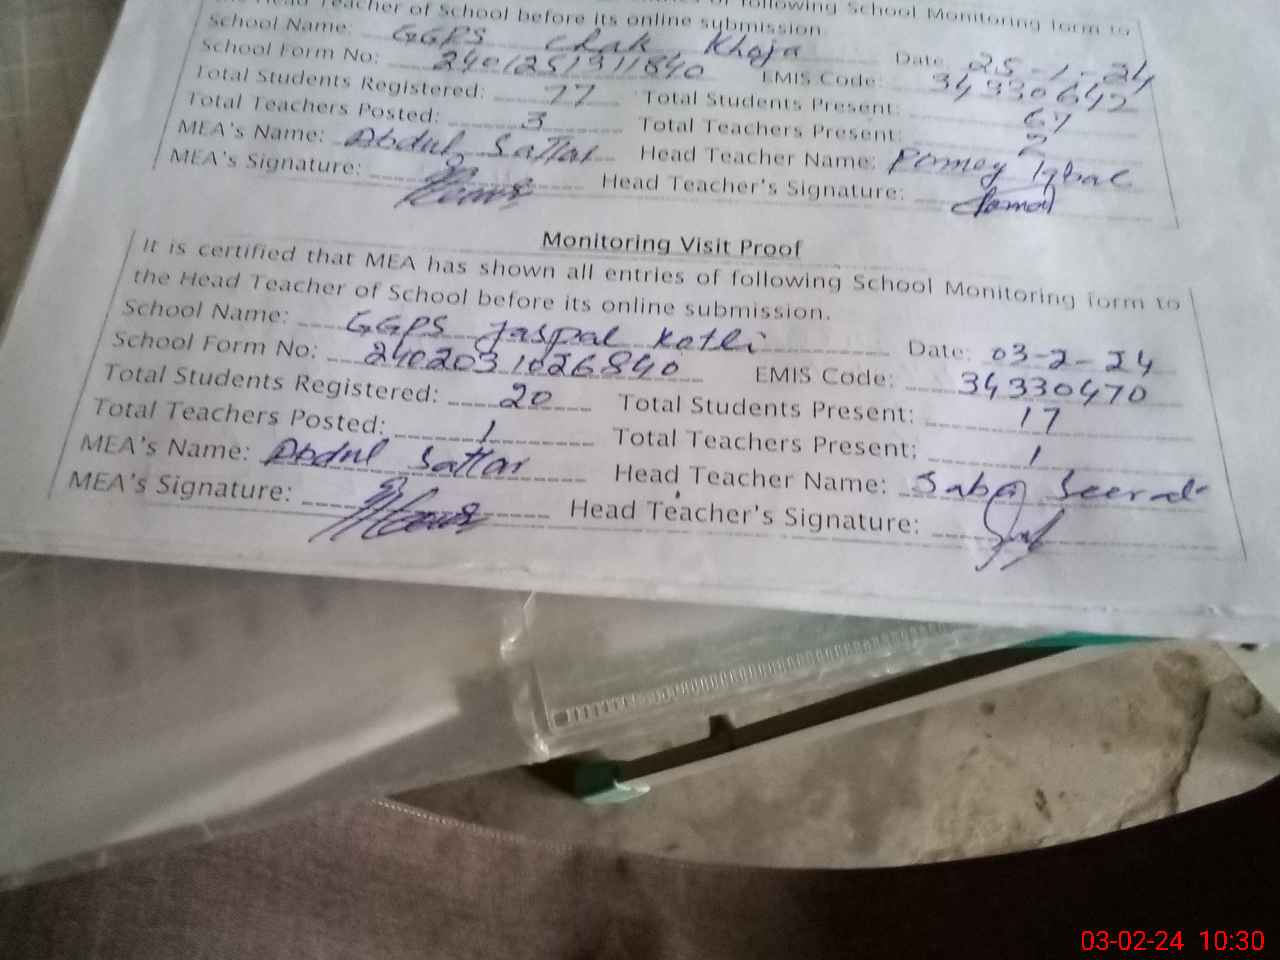 Teacher of School before its online submission.
following School Monitoring form to
School Name: GGPS Chak Khoja Date: 25-1-24
School Form No: 2401251311840 EMIS Code: 34330642
Total Students Registered: 77 Total Students Present: 67
Total Teachers Posted: 3 Total Teachers Present: 2
MEA's Name: Abdul Sattar Head Teacher Name: Iqbal
MEA's Signature: Head Teacher's Signature:
Monitoring Visit Proof
It is certified that MEA has shown all entries of following School Monitoring form to
the Head Teacher of School before its online submission.
School Name: GGPS Jaspal Kotli Date: 03-2-24
School Form No: 2402031026840 EMIS Code: 34330470
Total Students Registered: 20 Total Students Present: 17
Total Teachers Posted: 1 Total Teachers Present: 1
MEA's Name: Abdul Sattar Head Teacher Name:
MEA's Signature: Head Teacher's Signature:
03-02-24 10:30